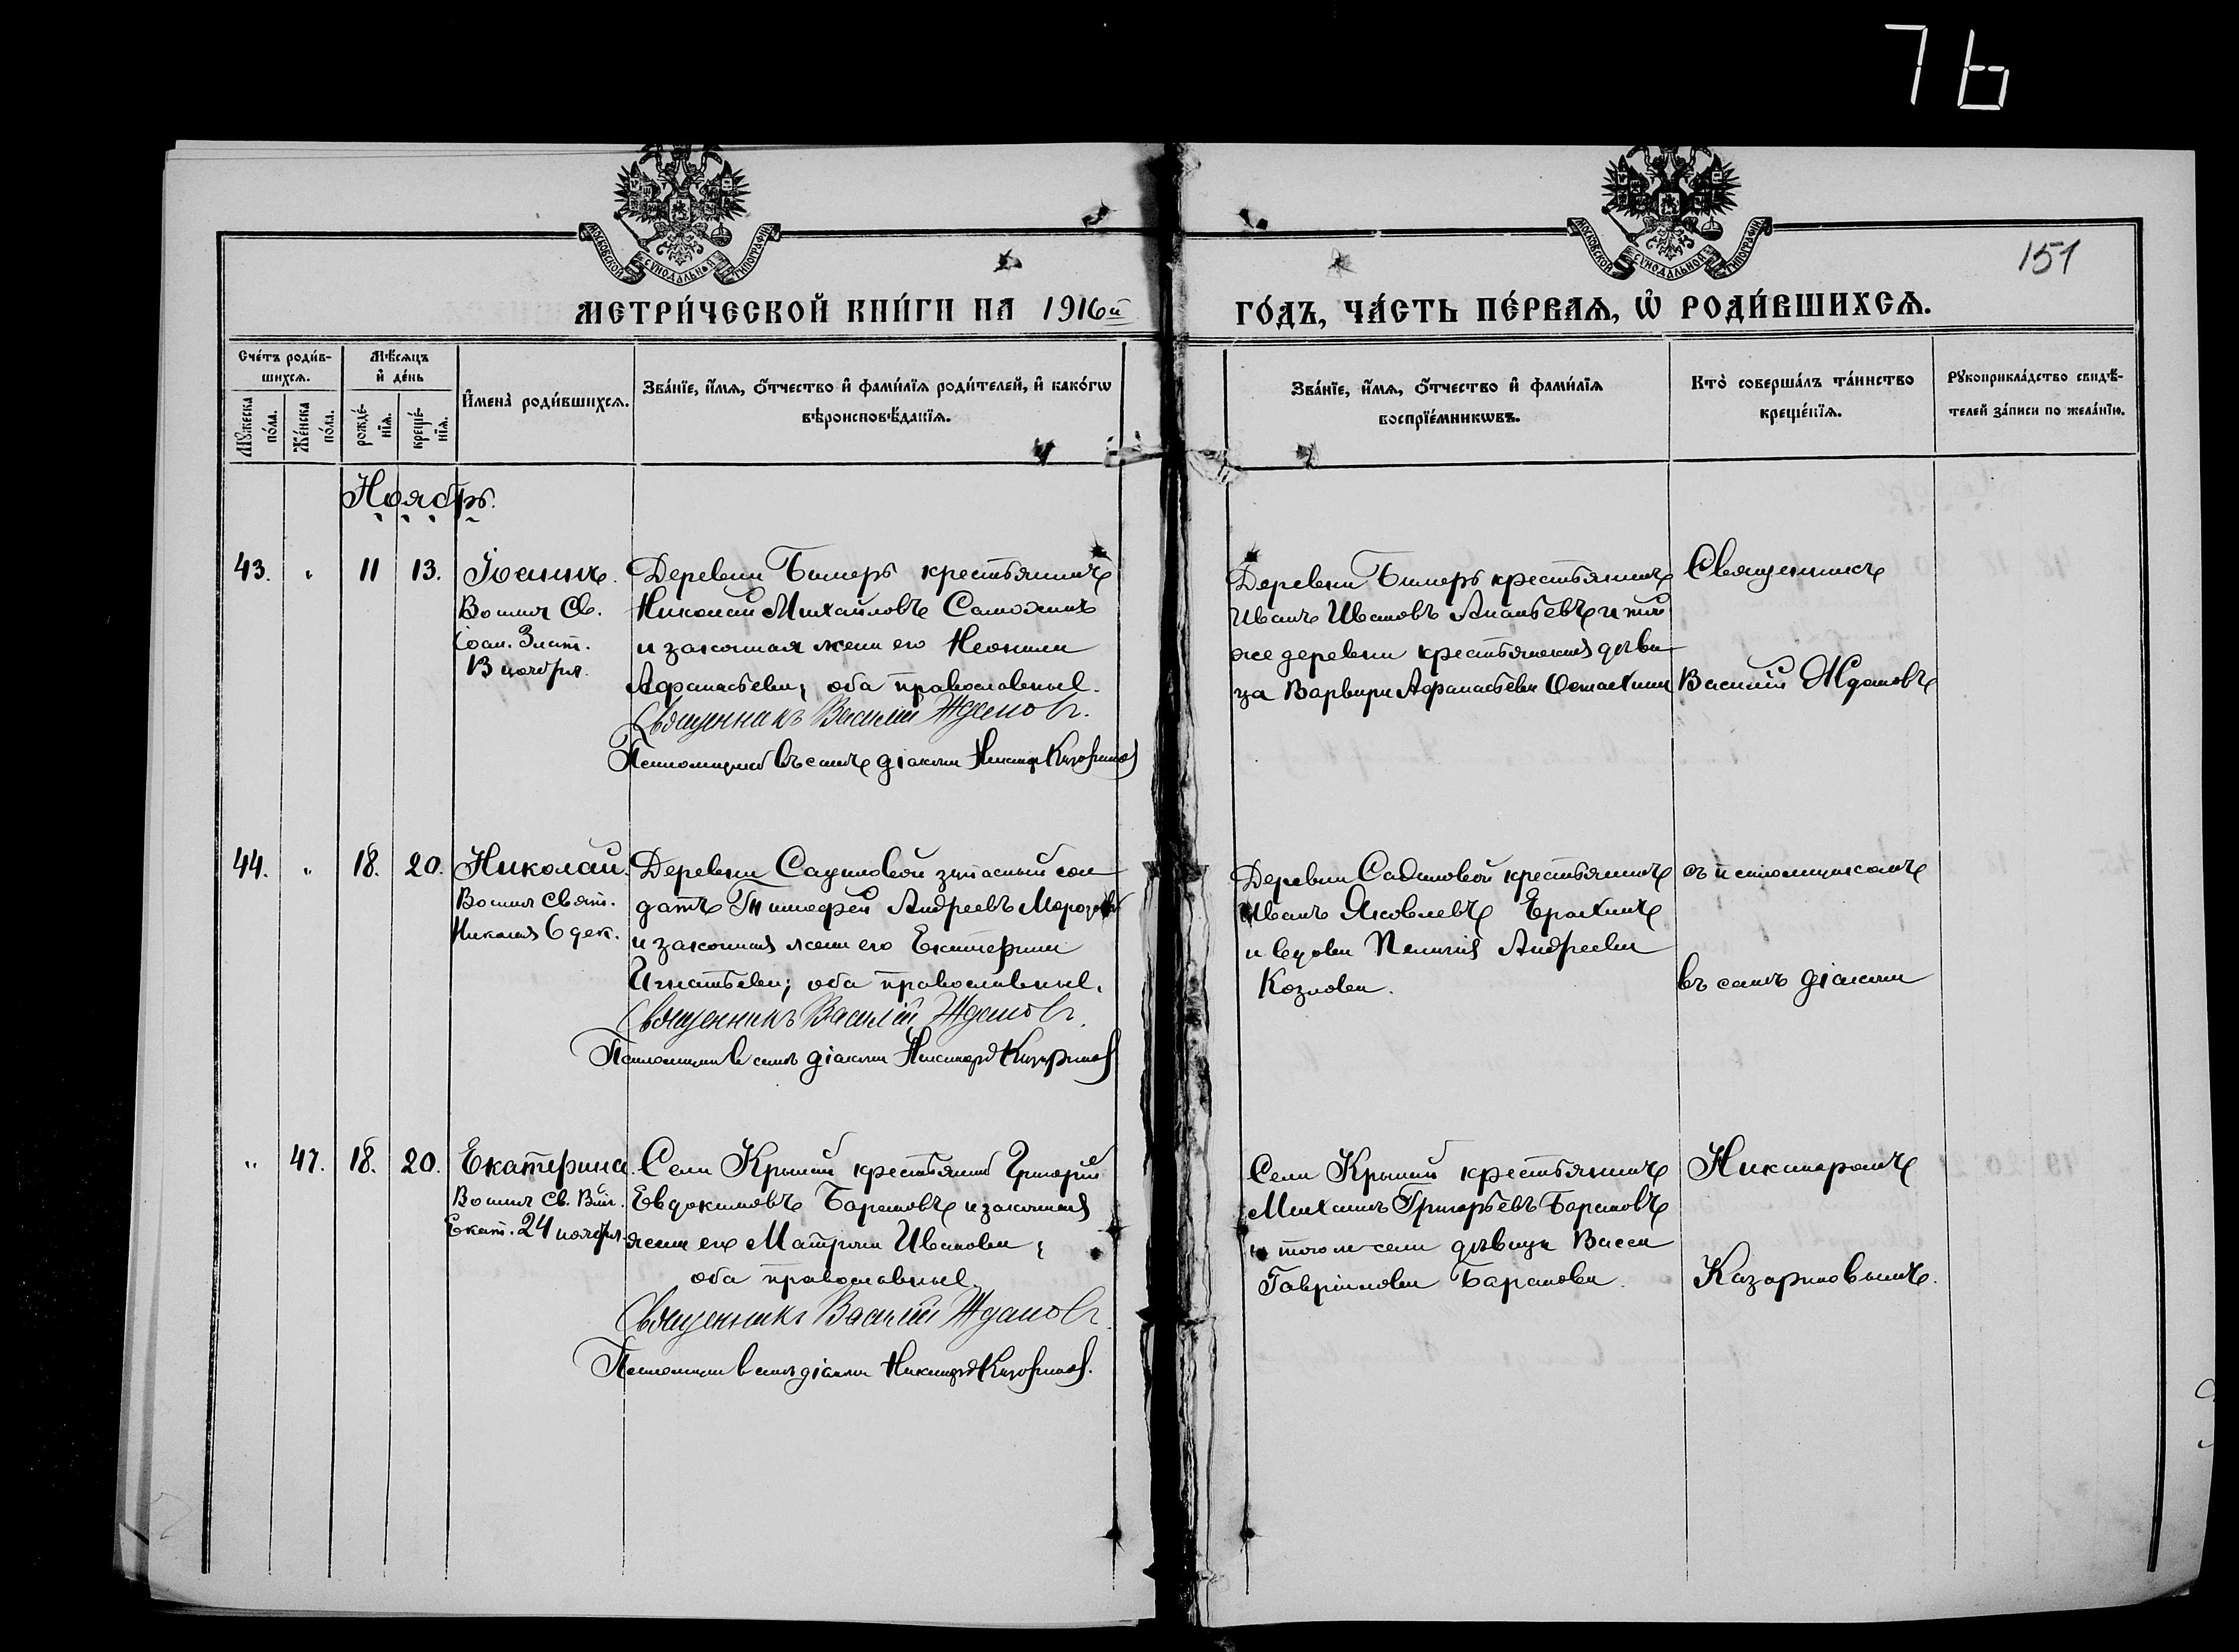 76
151
МОСКОВСКОЙ СѴНОДАЛЬНОЙ ТИПОГРАФІИ
МОСКОВСКОЙ СѴНОДАЛЬНОЙ ТИПОГРАФІИ
МЕТРИ́ЧЕСКОЙ КНИ́ГИ НА 1916й ГО́ДЪ, ЧА́СТЬ ПЕ́РВАѦ, Ѡ РОДИ́ВШИХСѦ.
Сче́тъ роди́в-
шихсѧ.
Мꙋжеска по́ла.
Же́нска по́ла.
Мѣ́сѧцъ
и҆ де́нь
рожде́-
нїѧ.
креще́-
нїѧ.
И҆мена̀ роди́вшихсѧ.
Зва́нїе, и҆́мѧ, ѻ҆́тчество и҆ фами́лїѧ роди́телей, и҆ како́гѡ
вѣроисповѣ́данїѧ.
Зва́нїе, и҆́мѧ, ѻ҆́тчество и҆ фами́лїѧ
воспрїе́мникѡвъ.
Кто̀ соверша́лъ та́инство
креще́нїѧ.
Рꙋкоприкла́дство свидѣ́-
телей за́писи по жела́нїю.
Ноябрь.
43. " 11 13. Іоаннъ.
Во имя Св.
Іоан. Злат.
13 ноября.
Деревни Бимеръ крестьянинъ
Николай Михайловъ
и законная жена его Неонила
Афанасьева; оба православные.
Священникъ Василій Ждановъ.
Псаломщикъ въ санѣ діакона Никаноръ Казариновъ
Деревни Бимеръ крестьянинъ
Иванъ Ивановъ Ананьевъ и той
же деревни крестьянская дѣви
ца Варвара Афанасьева
Священникъ
Василій Ждановъ
44. " 18. 20. Николай.
Во имя Свят.
Николая 6 дек.
Деревни запасный сол
датъ Тимофей Андреевъ Морозовъ
и законная жена его Екатерина
Игнатьева; оба православные.
Священникъ Василій Ждановъ.
Псаломщикъ въ санѣ діакона Никаноръ Казариновъ
Деревни крестьянинъ
Иванъ Яковлевъ
и вдова Андреева
Козлова.
съ псаломщикомъ
въ санѣ діакона
" 47. 18. 20. Екатерина.
Во имя Св. Вмч.
Екат. 24 ноября.
Села крестьянинъ Григорій
Евдокимовъ Барановъ и законная
жена его Матрона Иванова;
оба православные.
Священникъ Василій Ждановъ.
Псаломщикъ въ санѣ діакона Никаноръ Казариновъ.
Села крестьянинъ
Михаилъ Григорьевъ Барановъ
и того же села дѣвица Васса
Гавріилова Баранова.
Никаноромъ
Казариновымъ.